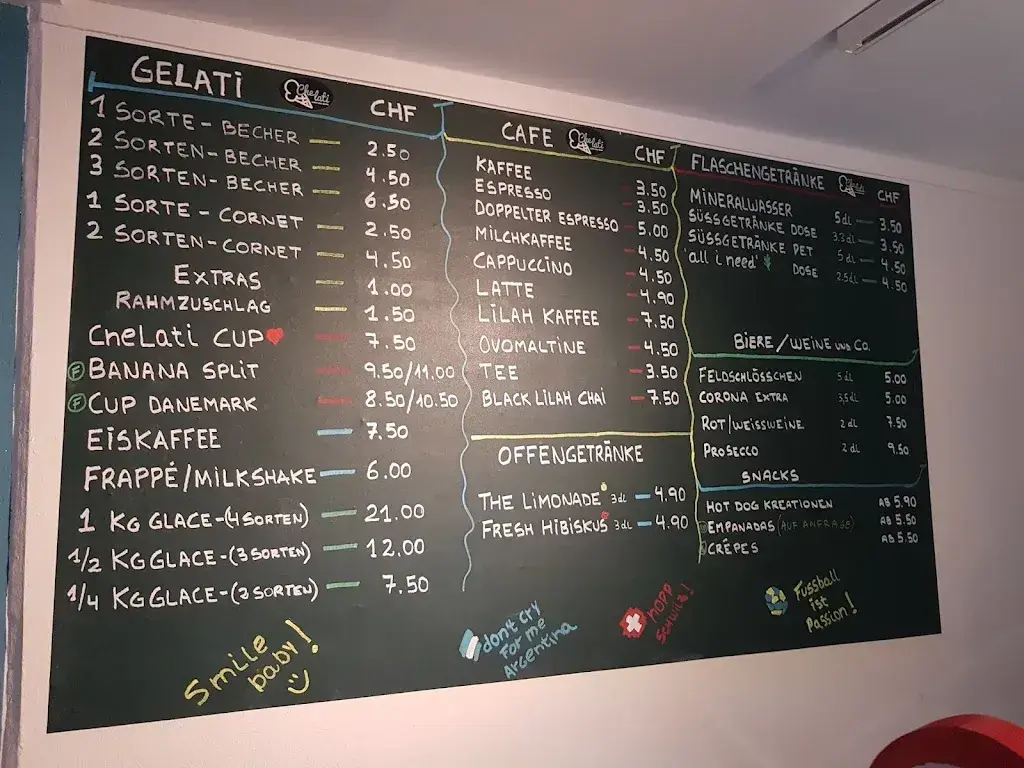 GELATI CheLati CHF
1 SORTE-BECHER 2.50
2 SORTEN-BECHER 4.50
3 SORTEN-BECHER 6.50
1 SORTE-CORNET 2.50
2 SORTEN-CORNET 4.50
EXTRAS 1.00
RAHMZUSCHLAG 1.50
CheLati CUP 7.50
F BANANA SPLIT 9.50/11.00
F CUP DANEMARK 8.50/10.50
EISKAFFEE 7.50
FRAPPÉ/MILKSHAKE 6.00
1 KG GLACE-(4 SORTEN) 21.00
1/2 KG GLACE-(3 SORTEN) 12.00
1/4 KG GLACE-(2 SORTEN) 7.50
Smile
baby!
CAFE CheLati CHF
KAFFEE 3.50
ESPRESSO 3.50
DOPPELTER ESPRESSO 5.00
MILCHKAFFEE 4.50
CAPPUCCINO 4.50
LATTE 4.90
LILAH KAFFEE 7.50
OVOMALTINE 4.50
TEE 3.50
BLACK LILAH CHAI 7.50
OFFENGETRÄNKE
THE LIMONADE 3dL 4.90
FRESH HIBISKUS 3dL 4.90
don't cry
For me
Argentina
HOPP
SCHWIIZ!
FLASCHENGETRÄNKE CheLati CHF
MINERALWASSER 5dL 3.50
SÜSSGETRÄNKE DOSE 3.3dL 3.50
SÜSSGETRÄNKE PET 5dL 4.50
all i need DOSE 2.5dL 4.50
BIERE/WEINE UND CO.
FELDSCHLÖSSCHEN 5dL 5.00
CORONA EXTRA 3,5dL 5.00
ROT/WEISSWEINE 2dL 7.50
PROSECCO 2dL 9.50
SNACKS
HOT DOG KREATIONEN AB 5.90
EMPANADAS (AUF ANFRAGE) AB 5.50
CRÊPES AB 5.50
Fussball
ist
Passion!